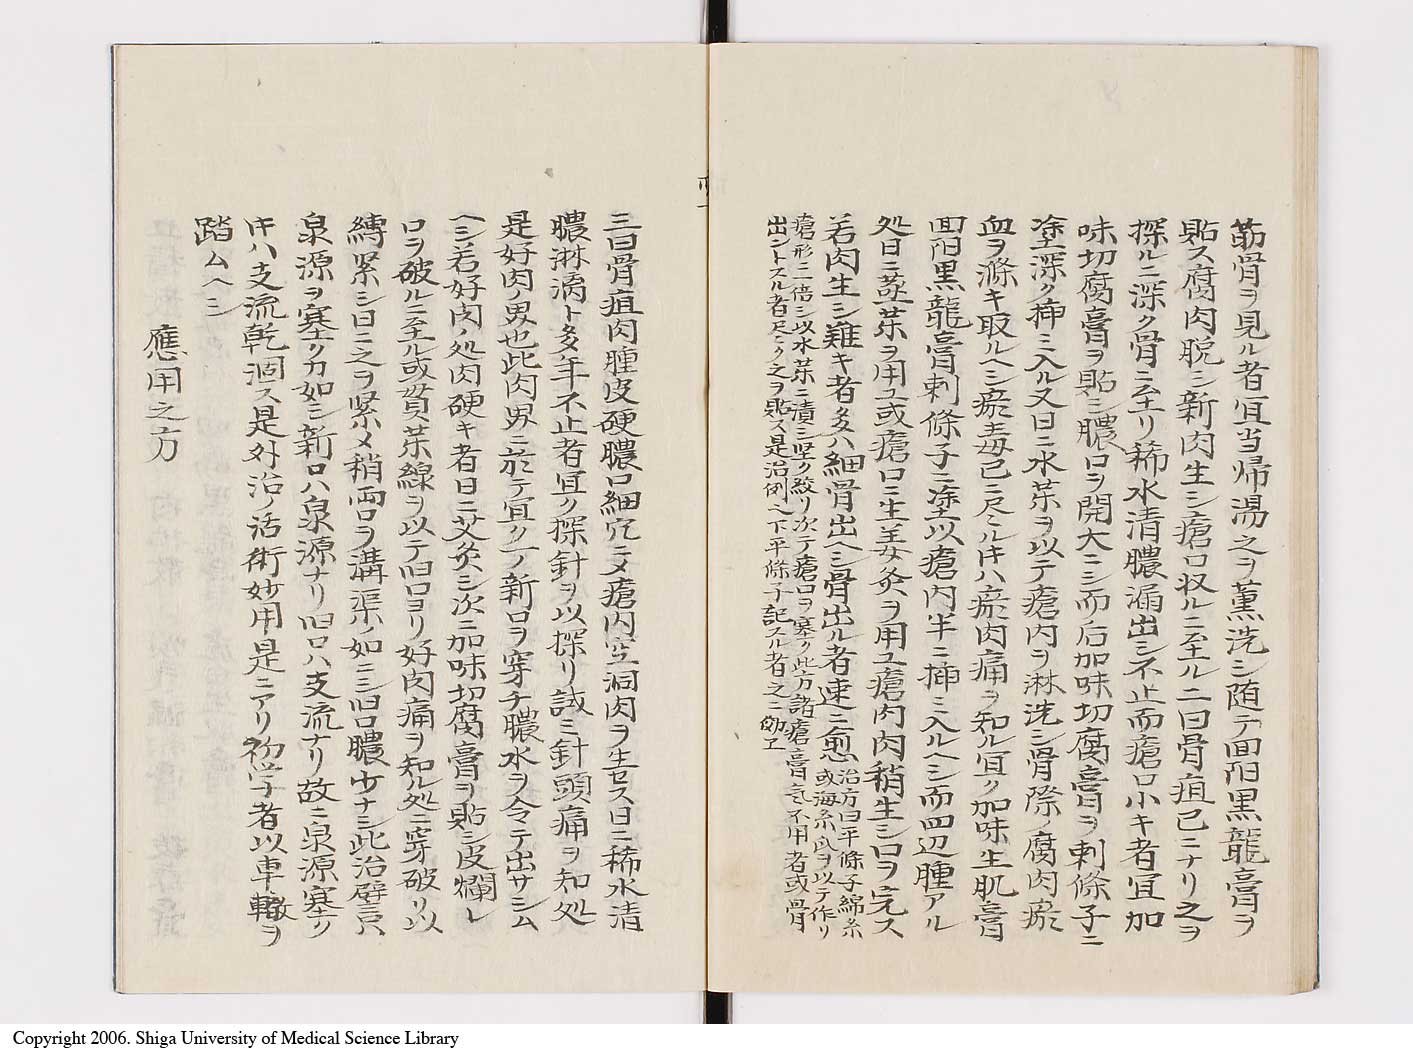 筋骨ヲ見ル者宜当帰湯之ヲ薫洗シ随テ面陌黒龍膏ヲ
貼ス腐肉脱シ新肉生シ瘡口収ルニ至ル二曰骨疽已ニナリ之ヲ
探ルニ深ク骨ニ至リ稀水清膿漏出シ不止而瘡口小キ者宜加
味切腐膏ヲ貼シ膿口ヲ開大ニシ而后加味切腐膏ヲ刺條子ニ
塗深ク挿ミ入ル又日ニ水茶ヲ以テ瘡内ヲ淋洗シ骨際ノ腐肉瘀
血ヲ滌キ取ルヘシ瘀毒已ニ尽ミル片ハ瘀肉痛ヲ知ル宜ク加味生肌膏
面陌黒龍膏刺條子ニ塗以瘡内半ニ挿ミ入ルヘシ而四辺腫アル
処日ニ蒸茶ヲ用ユ或瘡口ニ生姜灸ヲ用ユ瘡肉肉稍生シ口ヲ完ス
若肉生シ難キ者多ハ細骨出ヘシ骨出ル者速ニ愈
治方曰平條子綿糸
或海糸瓜ヲ以テ作リ
瘡形ニ倍シ以水茶ニ漬シ堅ク絞リ次テ瘡口ヲ塞ク此方諸瘡膏ヲ不用者或骨
出ントスル者尽ク之ヲ貼ス是治例ヘ下平條子記スル者之ニ効ヱ
三曰骨疽肉腫皮硬膿口細穴ニメ瘡内空洞肉ヲ生セス日ニ稀水清
膿淋漓ト多年不止者宜ク探針ヲ以探リ試ミ針頭痛ヲ知処
是好肉ノ界也此肉界ニ於テ宜ク一ノ新口ヲ穿チ膿水ヲ令テ出サシム
ヘシ若好肉ノ処肉硬キ者日ニ艾灸シ次ニ加味切腐膏ヲ貼シ皮爛レ
口ヲ破ルニ至ル或貫茶線ヲ以テ旧口ヨリ好肉痛ヲ知ル処ニ穿破リ以
縛緊シ日ニ之ヲ緊メ稍両口ラ溝渠ノ如ニシ旧口膿少ナシ此治譬言ハ
泉源ヲ塞クカ如シ新口ハ泉源ナリ旧口ハ支流ナリ故ニ泉源塞ク
片ハ支流乾涸ス是外治ノ活術妙用是ニアリ初学者以車轍ヲ
踏ムヘシ
應用之方
Copyright 2006. Shiga University of Medical Science Library